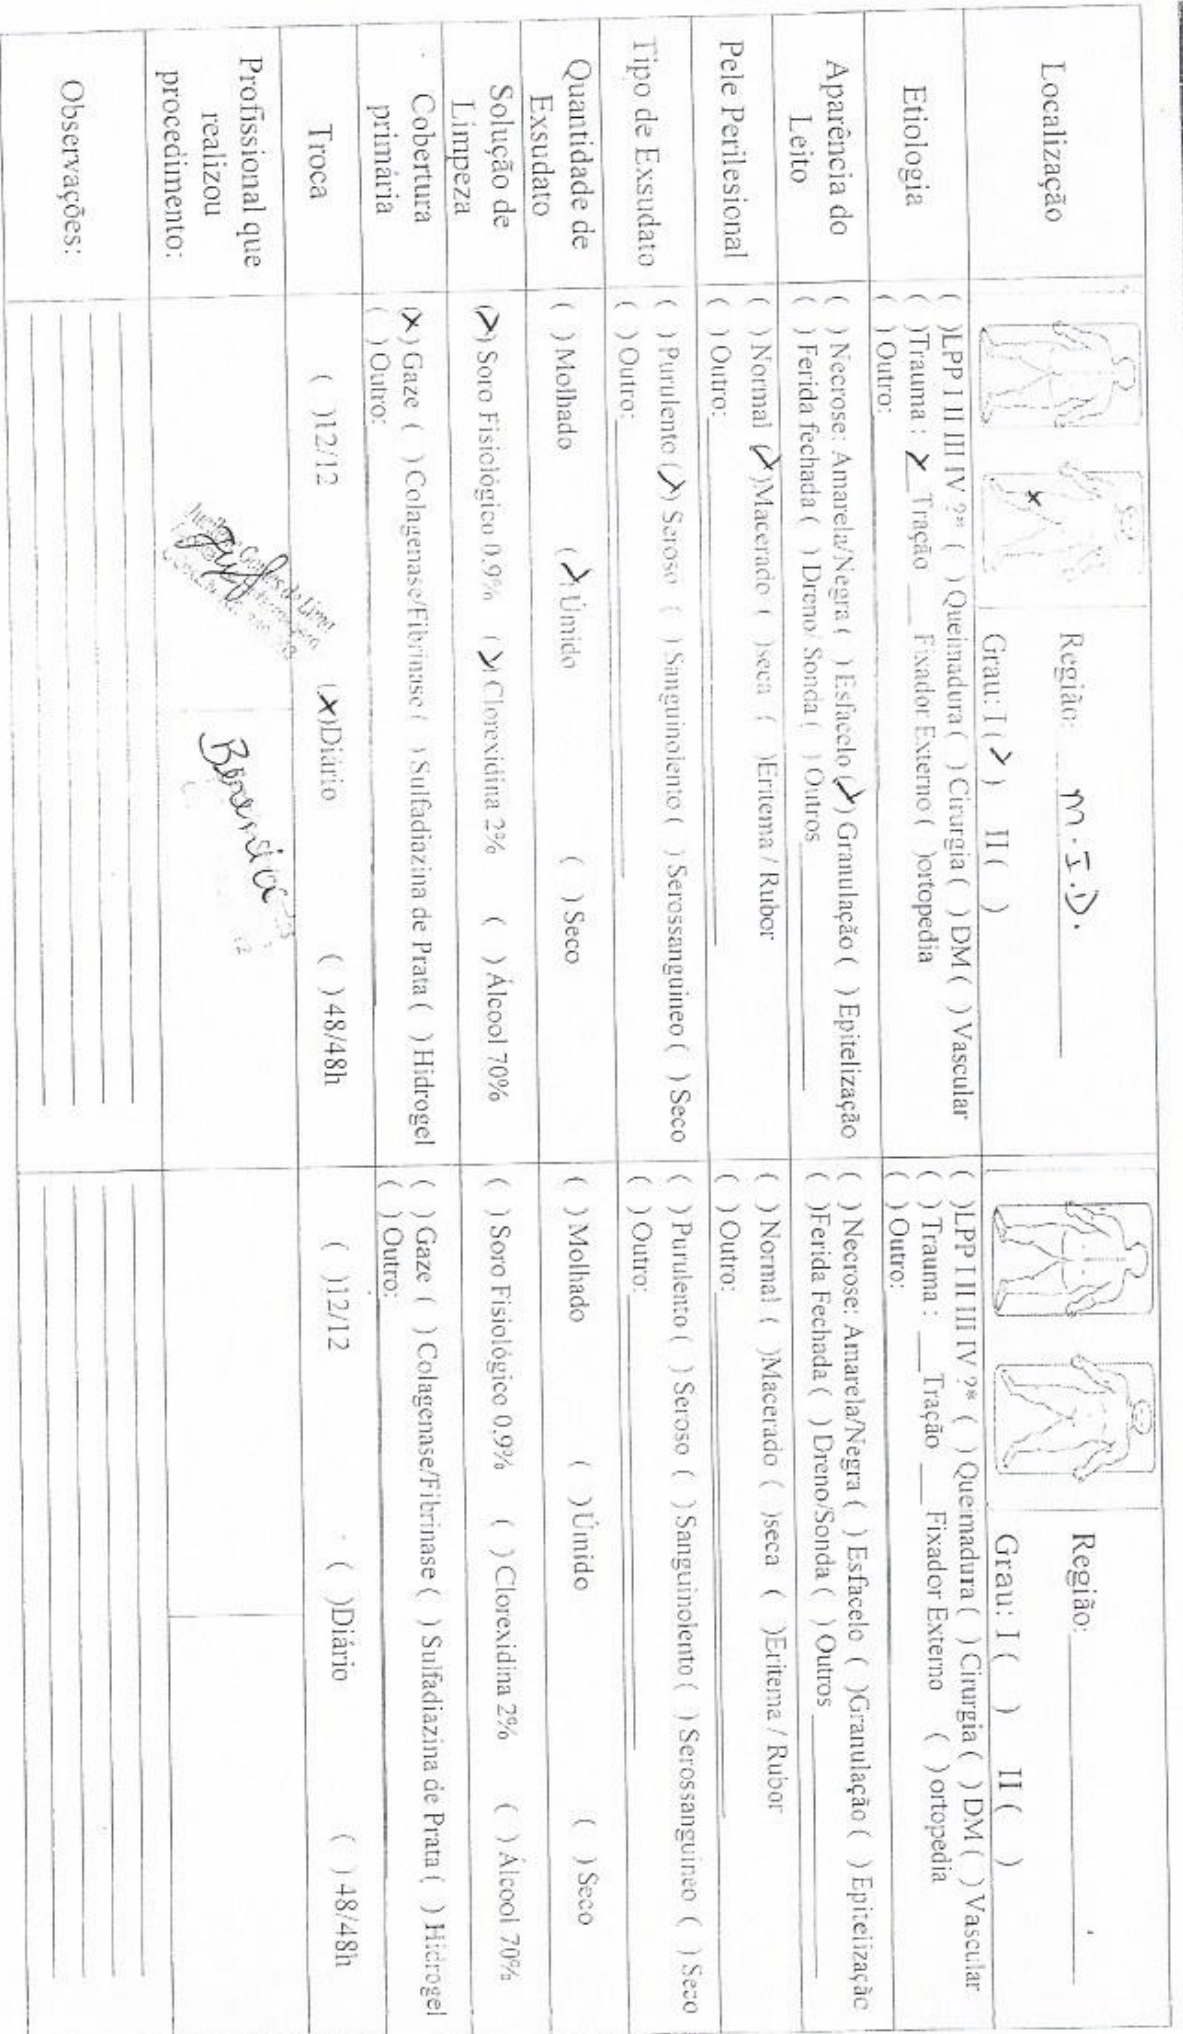 Localização
Região: M.I.D.
Grau: I (X) II ( )
Região:
Grau: I ( ) II ( )
Etiologia
( )LPP I II III IV ?* ( ) Queimadura ( ) Cirurgia ( ) DM ( ) Vascular
( )Trauma : X Tração ___ Fixador Externo ( )ortopedia
( ) Outro:
( )LPP I II III IV ?* ( ) Queimadura ( ) Cirurgia ( ) DM ( ) Vascular
( ) Trauma : ___ Tração ___ Fixador Externo ( ) ortopedia
( ) Outro:
Aparência do
Leito
( ) Necrose: Amarela/Negra ( ) Esfacelo (X) Granulação ( ) Epitelização
( ) Ferida fechada ( ) Dreno/ Sonda ( ) Outros
( ) Necrose: Amarela/Negra ( ) Esfacelo ( )Granulação ( ) Epitelização
( )Ferida Fechada ( ) Dreno/Sonda ( ) Outros
Pele Perilesional
( ) Normal (X)Macerado ( )seca ( )Eritema / Rubor
( ) Outro:
( ) Normal ( )Macerado ( )seca ( )Eritema / Rubor
( ) Outro:
Tipo de Exsudato
( ) Purulento (X) Seroso ( ) Sanguinolento ( ) Serossanguineo ( ) Seco
( ) Outro:
( ) Purulento ( ) Seroso ( ) Sanguinolento ( ) Serossanguineo ( ) Seco
( ) Outro:
Quantidade de
Exsudato
( ) Molhado (X) Úmido ( ) Seco
( ) Molhado ( ) Úmido ( ) Seco
Solução de
Limpeza
(X) Soro Fisiológico 0.9% (X) Clorexidina 2% ( ) Álcool 70%
( ) Soro Fisiológico 0,9% ( ) Clorexidina 2% ( ) Álcool 70%
Cobertura
primária
(X) Gaze ( ) Colagenase/Fibrinase ( ) Sulfadiazina de Prata ( ) Hidrogel
( ) Outro:
( ) Gaze ( ) Colagenase/Fibrinase ( ) Sulfadiazina de Prata ( ) Hidrogel
( ) Outro:
Troca
( )12/12 (X)Diário ( ) 48/48h
( )12/12 ( )Diário ( ) 48/48h
Profissional que
realizou
procedimento:
de Lima
Observações: